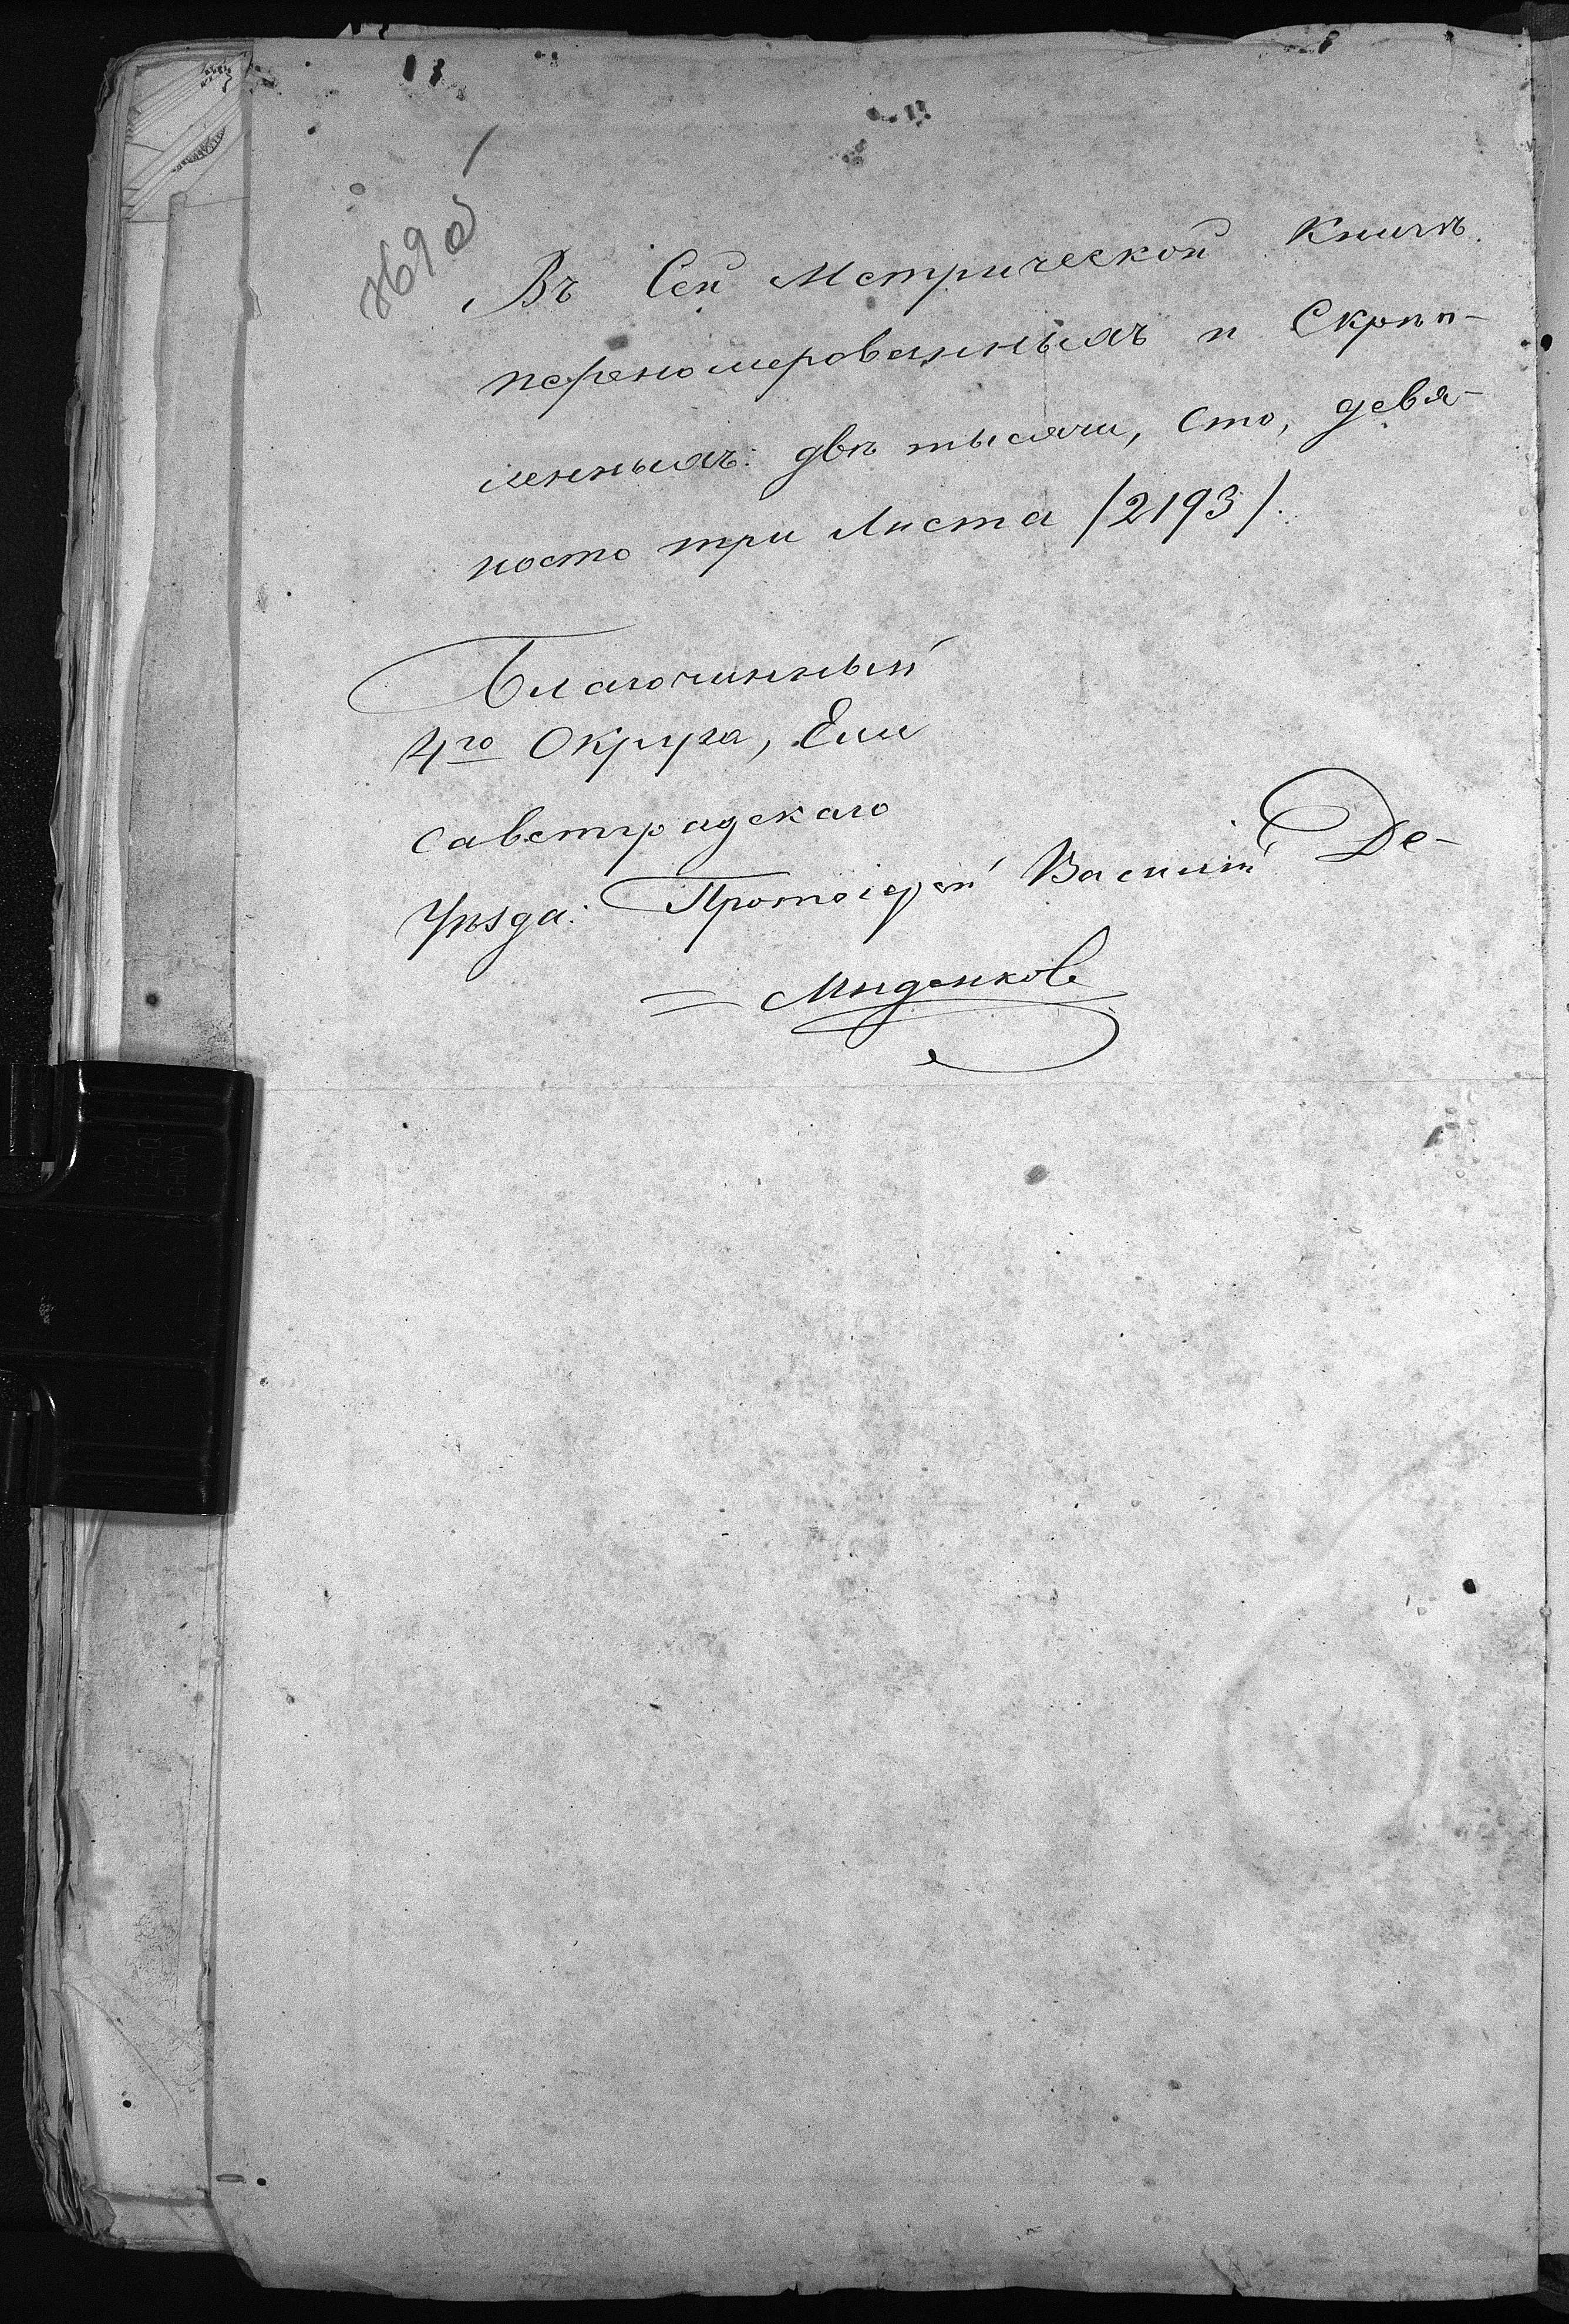 Въ Сей Метрической Книгѣ
перенумерованныхъ и Скрѣп-
ленныхъ: двѣ тысячи, сто, девя-
носто три Листа /2193/.
Благочинный
4го Округа, Ели
саветградскаго
Уѣзда: Протоіерей Василій Де-
= миденковъ